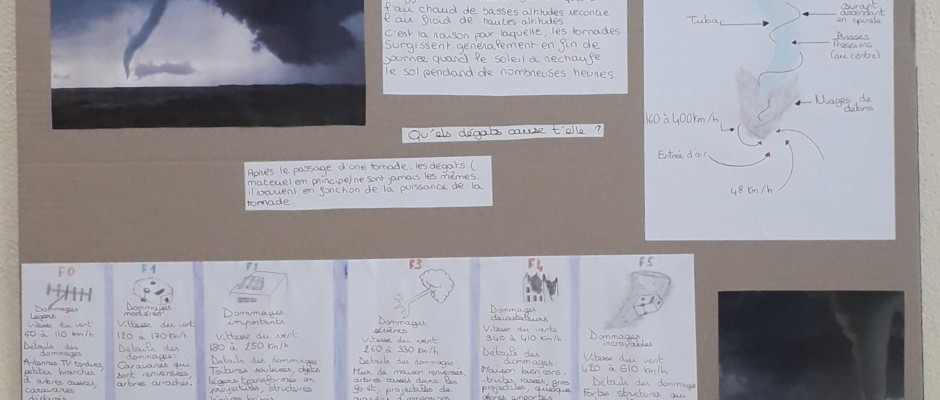 l'air chaud de basses altitudes rencontre
l'air froid de hautes altitudes.
c'est la raison pour laquelle, les tornades
Surgissent généralement en fin de
journée quand le soleil a rechauffé
le sol pendand de nombreuses heures
courant
ascendant
en spirale
Tuba
Basses
Pressions
(au centre)
Nuages de
débris
160 à 400km/h
Entrée d'air
48 km/h
Qu'els dégats cause t'elle ?
Après le passage d'une tornade, les dégats (
materiel en principe) ne sont jamais les mêmes.
il varient en fonction de la puissance de la
tornade
F0
Dommages
Légers
Vitesse du vent
60 à 110 km/h
Détails des
dommages
Antennes TV tordues,
petites branches
d'arbres cassés,
caravanes
F1
Dommages
modérés
Vitesse du vent
120 à 170 km/h
Détails des
dommages:
Caravanes qui
sont renversées,
arbres arachés.
F2
Dommages
importants
Vitesse du vent
180 à 250 km/h
Détails des dommages
Toitures soulevées, objets
légers transformés en
projectiles, structures
F3
Dommages
sévères
Vitesse du vent
260 à 330 km/h
Détails des dommages
Murs de maison renversés,
arbres cassés dans les
forêt, projectiles de
grandes dimensions
F4
Dommages
dévastateurs
Vitesse du vent
340 à 410 km/h
Détails des
dommages
Maison bien cons-
truites rasées, gros
projectiles, quelques
arbres emportés
F5
Dommages
incroyables
Vitesse du vent
420 à 510 km/h
Détails des dommages
Fortes structures qui